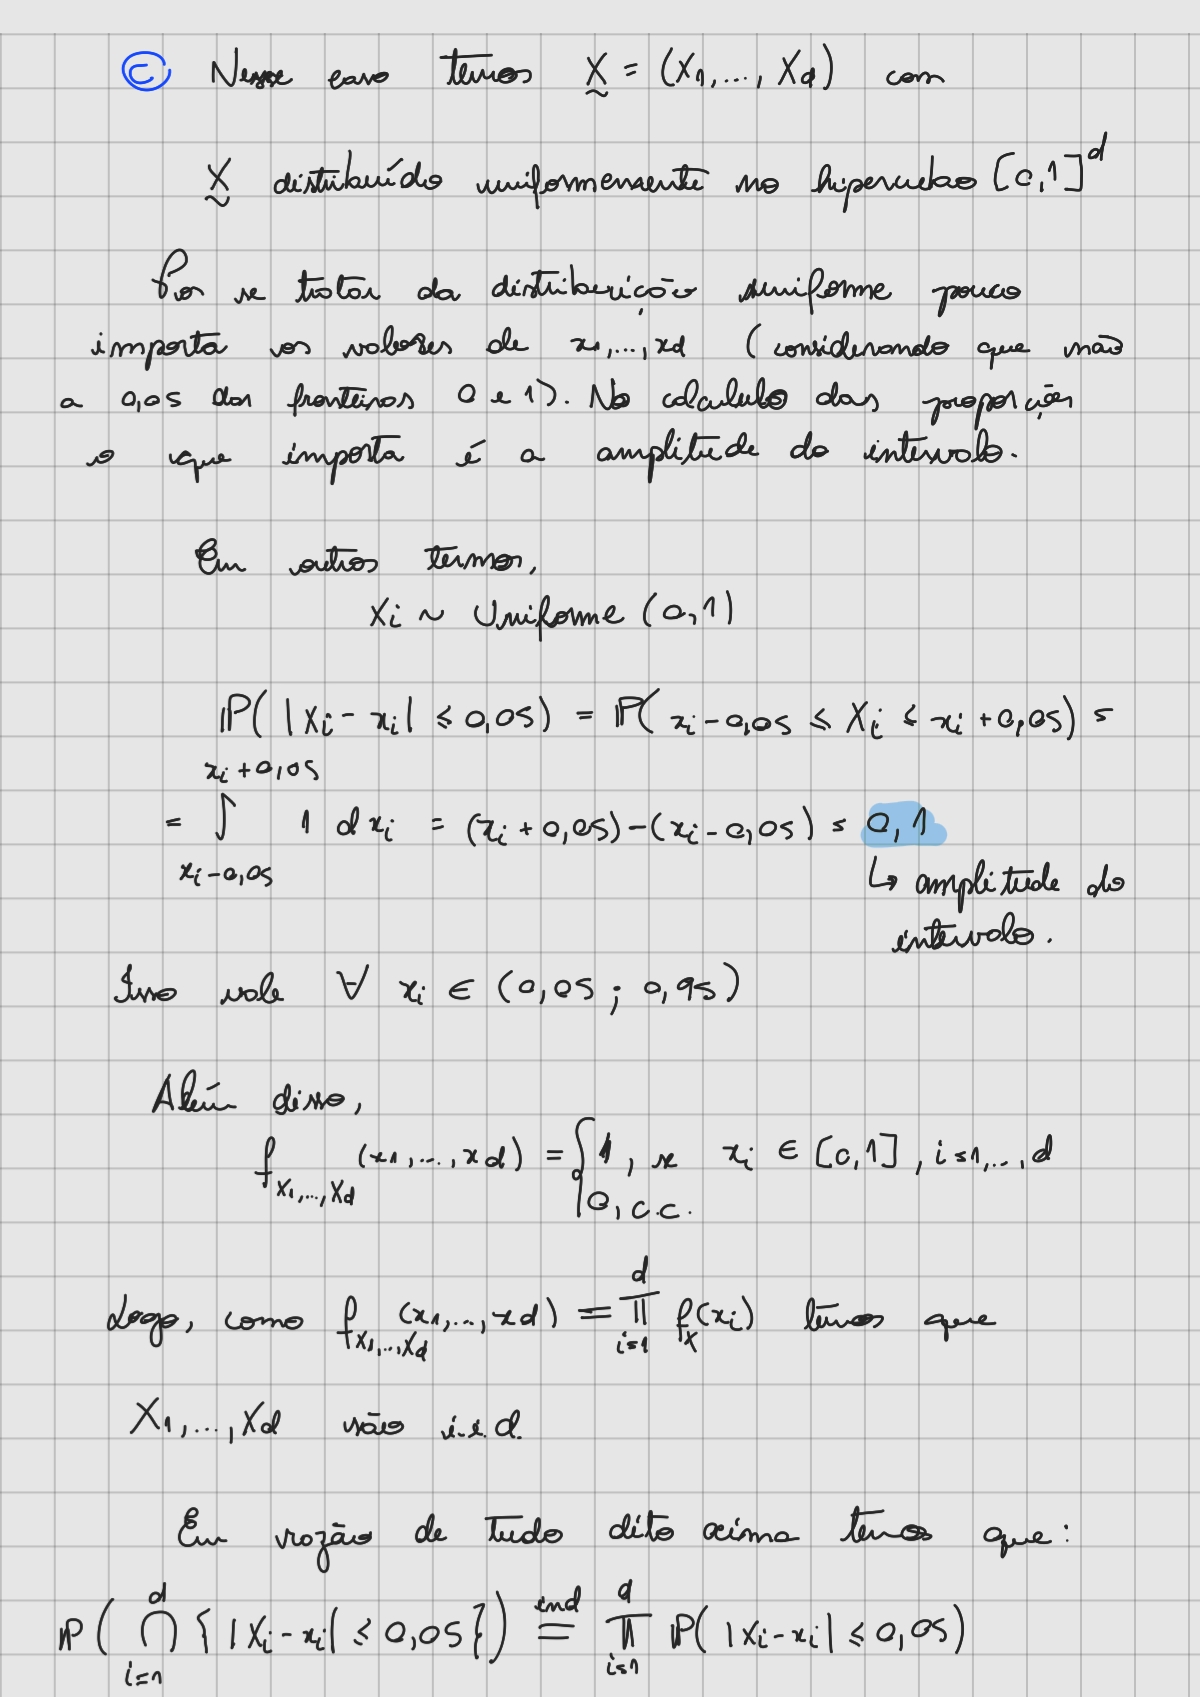 c Nesse caso temos X = (X1,..., Xd) com
X distribuído uniformemente no hipercubo [0,1]^d
Por se tratar da distribuição uniforme pouco
importa os valores de x1,..., xd (considerando que não
a 0,05 das fronteiras 0 e 1). No calculo das proporção
o que importa é a amplitude do intervalo.
Em outros termos,
Xi ~ Uniforme (0,1)
P( |Xi - xi| ≤ 0,05) = P( xi - 0,05 ≤ Xi ≤ xi + 0,05) =
= ∫_{xi-0,05}^{xi+0,05} 1 dxi = (xi + 0,05) - (xi - 0,05) = 0,1
↳ amplitude do
intervalo.
Isso vale ∀ xi ∈ (0,05 ; 0,95)
Além disso,
f_{X1,...,Xd} (x1,..., xd) = { 1, se xi ∈ [0,1], i=1,...,d
0, c.c.
Logo, como f_{X1,...,Xd} (x1,..., xd) = ∏_{i=1}^{d} f_X(xi) temos que
X1,..., Xd são i.i.d.
Em razão de tudo dito acima temos que:
P( ⋂_{i=1}^{d} { |Xi - xi| ≤ 0,05 }) =^{ind} ∏_{i=1}^{d} P( |Xi - xi| ≤ 0,05)